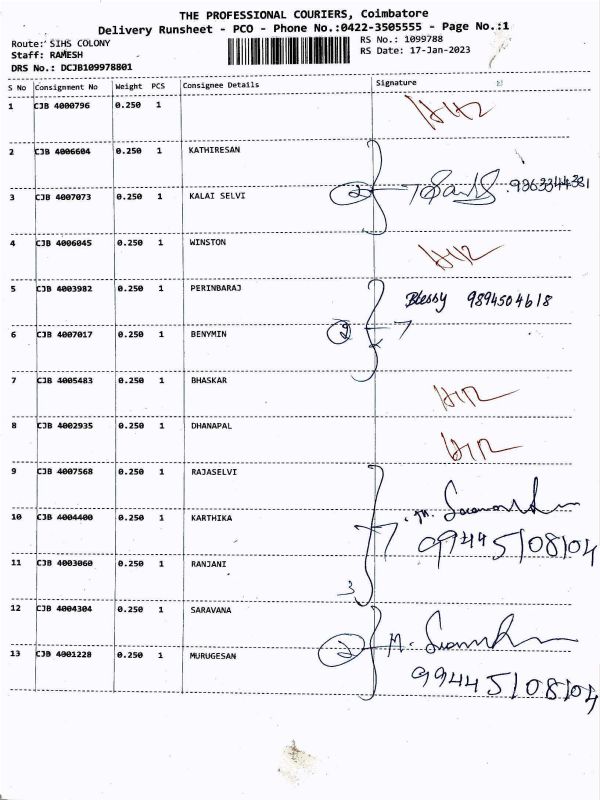 THE PROFESSIONAL COURIERS, Coimbatore
Delivery Runsheet - PCO - Phone No.:0422-3505555 - Page No.:1
Route: SIHS COLONY RS No.: 1099788
Staff: RAMESH RS Date: 17-Jan-2023
DRS No.: DCJB109978801
S No Consignment No Weight PCS Consignee Details Signature
1 CJB 4000796 0.250 1
2 CJB 4006604 0.250 1 KATHIRESAN
2 9863344381
3 CJB 4007073 0.250 1 KALAI SELVI
4 CJB 4006045 0.250 1 WINSTON
5 CJB 4003982 0.250 1 PERINBARAJ Blessy 9894504618
2
6 CJB 4007017 0.250 1 BENYMIN
7 CJB 4005483 0.250 1 BHASKAR
8 CJB 4002935 0.250 1 DHANAPAL
9 CJB 4007568 0.250 1 RAJASELVI
10 CJB 4004400 0.250 1 KARTHIKA
09445108104
11 CJB 4003060 0.250 1 RANJANI
3
12 CJB 4004304 0.250 1 SARAVANA
2 M.
13 CJB 4001228 0.250 1 MURUGESAN
99445108104